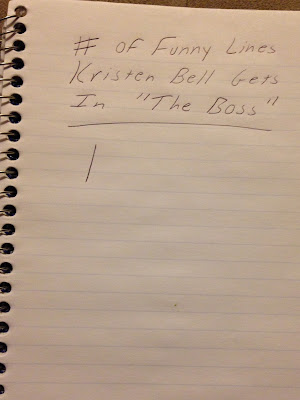 # of Funny Lines
Kristen Bell Gets
In "The Boss"
|